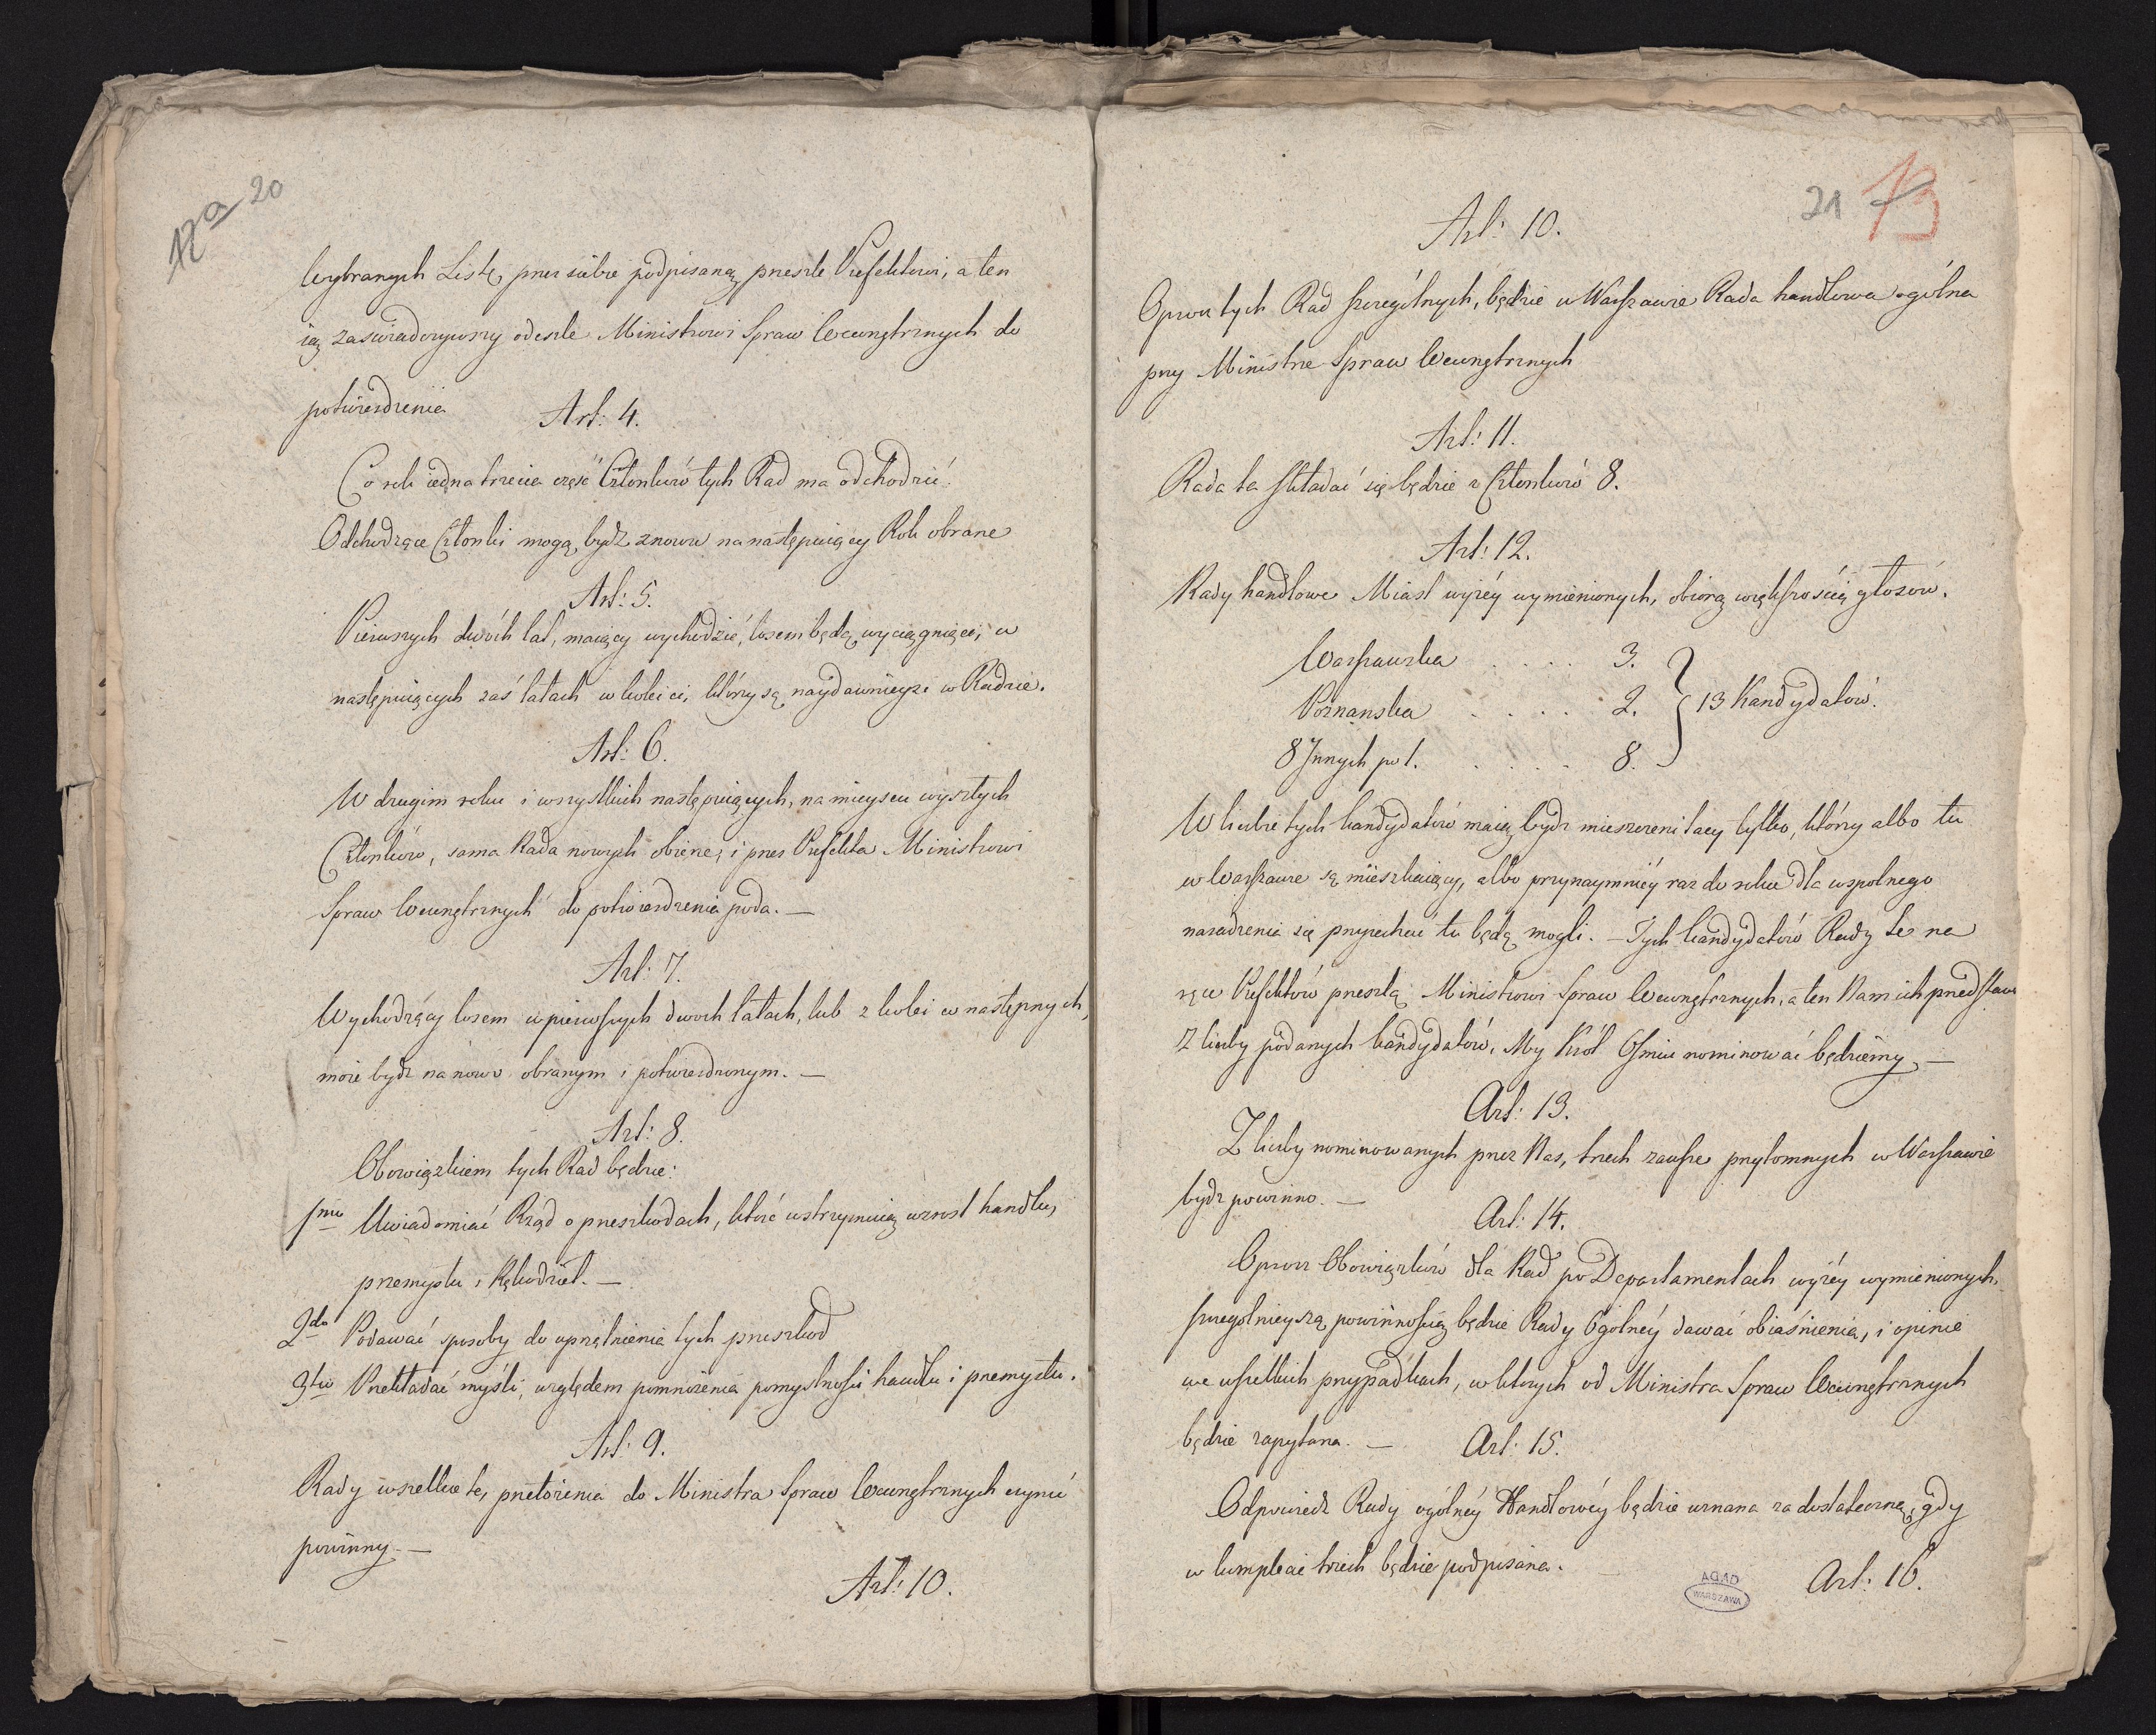 12a 20
Wybranych Listę przez siebie podpisaną prześle Prefektowi, a ten
ią zaświadczywszy odeszle Ministrowi Spraw Wewnętrznych do
potwierdzenia
Art: 4.
Co rok iedna trzecia część Członków tych Rad ma odchodzić.
Odchodzące Członki mogą bydz znowu na następuiący Rok obrane
Art: 5.
Pierwszych dwóch lat, maiący wychodzić, losem będą wyciągnięci, w
następuiących zaś latach w kolei ci, którzy są naydawnieysi w Radzie.
Art: 6.
W drugim roku i wszystkich następuiących, na mieyscu wyszłych
Członków, sama Rada nowych obierze, i przez Prefekta Ministrowi
Spraw Wewnętrznych do potwierdzenia poda. —
Art: 7.
Wychodzący losem w pierwszych dwóch latach, lub z kolei w następnych,
może bydz na nowo obranym i potwierdzonym. —
Art: 8.
Obowiązkiem tych Rad będzie:
1mo Uwiadomiać Rząd o przeszkodach, które wstrzymuią wzrost handlu,
przemysłu i Rękodzieł. —
2do Podawać sposoby do uprzątnienia tych przeszkod
3tio Przekładać myśli, względem pomnożenia pomyslności handlu i przemysłu.
Art: 9.
Rady wszelkie te, przełożenia do Ministra Spraw Wewnętrznych czynić
powinny. —
Art: 10.
21 13
Art: 10.
Oprocz tych Rad szczegulnych, będzie w Warszawie Rada handlowa ogólna
przy Ministrze Spraw Wewnętrznych
Art: 11.
Rada ta składać się będzie z Członków 8.
Art: 12.
Rady handlowe Miast wyżéy wymienionych, obiorą większością głosów.
Warszawska . . . . 3.
Poznanska . . . . 2. } 13 Kandydatów.
8 Innych po 1. . . . . 8.
W liczbie tych kandydatów maią bydz mieszczeni tacy tylko, którzy albo tu
w Warszawie są mieszkaiący, albo przynaymniéy raz do roku dla wspolnego
naradzenia się przyiechać tu będą mogli. — Tych kandydatów Rady te na
ręce Prefektów prześlą Ministrowi Spraw Wewnętrznych, a ten Nam ich przedstawi
Z liczby podanych kandydatów, My Król Ośmiu nominować będziemy. —
Art: 13.
Z liczby nominowanych przez Nas, trzech zawsze przytomnych w Warszawie
bydz powinno. —
Art: 14.
Oprocz Obowiązków dla Rad po Departamentach wyżéy wymienionych,
szczegolnieyszą powinnością będzie Rady Ogólnéy dawać obiaśnienia, i opinie
we wszelkich przypadkach, w których od Ministra Spraw Wewnętrznych
będzie zapytana. —
Art: 15.
Odpowiedz Rady ogólnéy Handlowéy będzie uznana za dostateczną, gdy
w komplecie trzech będzie podpisana.
AGAD
WARSZAWA
Art: 16.